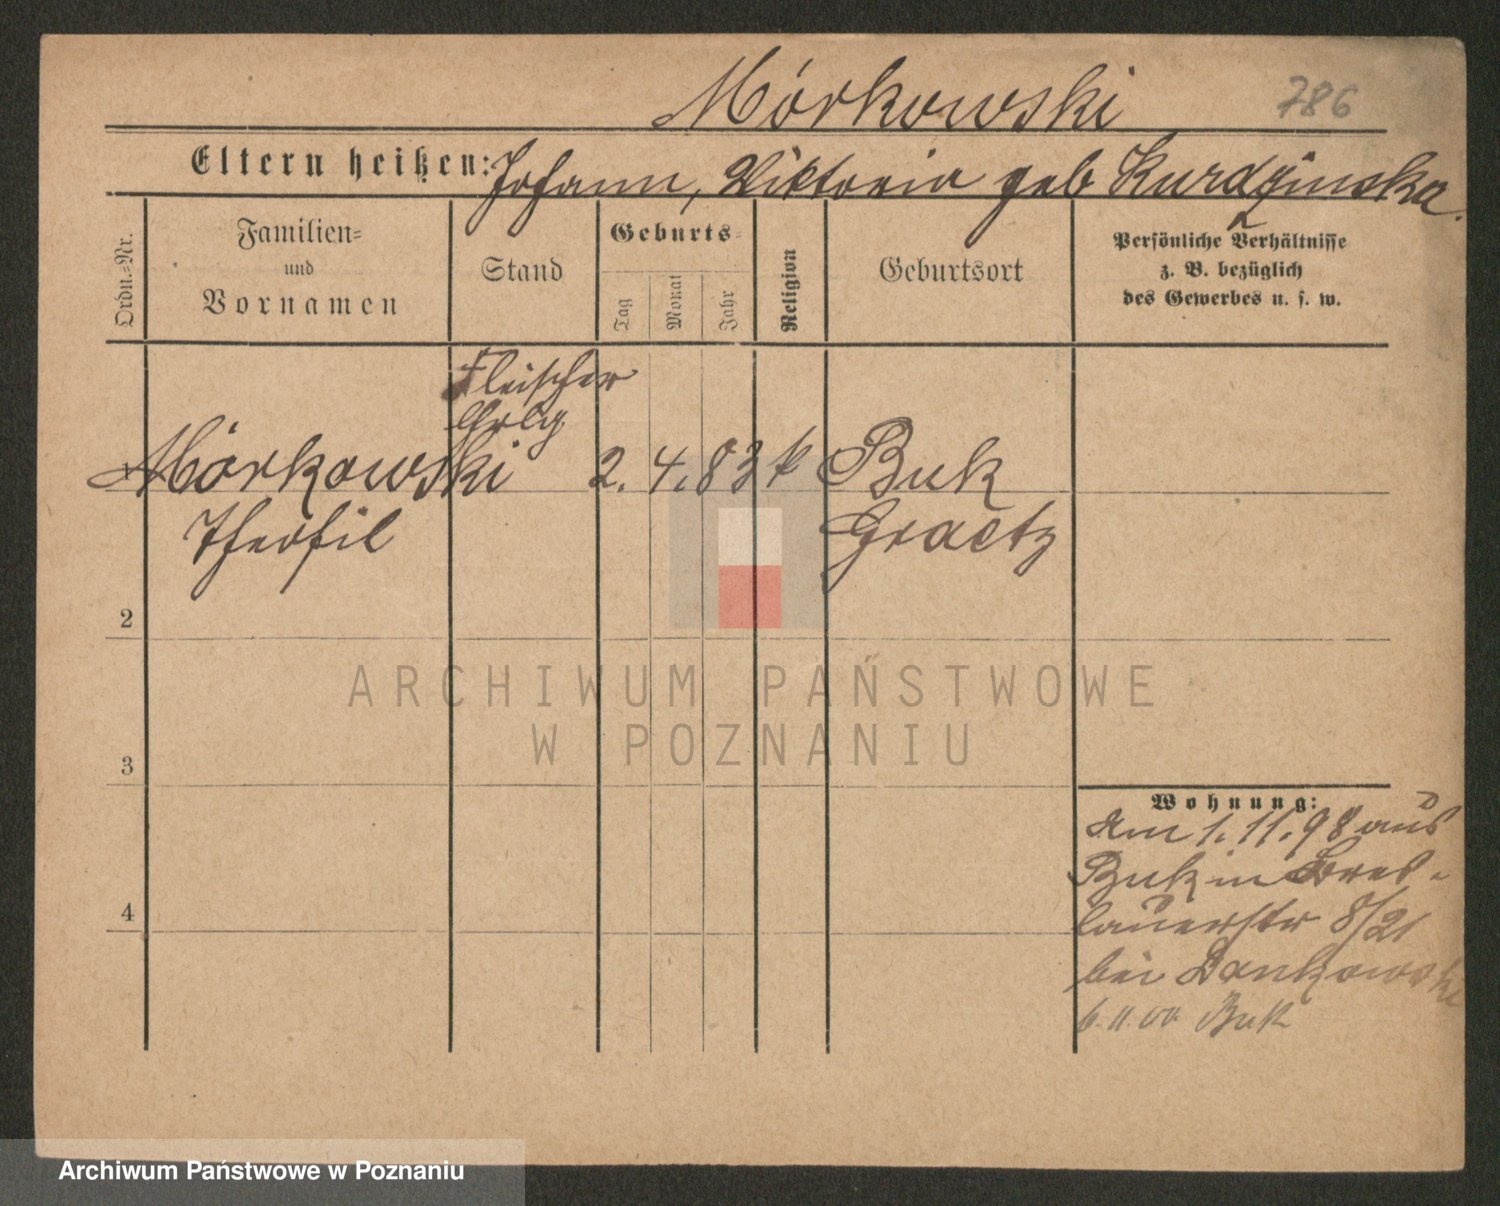 Mórkowski
786
Eltern heißen: Johann, Viktoria geb Kurdzinska.
Ordn.-Nr.
Familien-
und
Vornamen
Stand
Geburts-
Tag
Monat
Jahr
Religion
Geburtsort
Persönliche Verhältnisse
z. B. bezüglich
des Gewerbes u. s. w.
Fleischer
Mórkowski
2. 4. 83 k Buk
Theofil
Graetz
2
3
4
Wohnung:
Am 1. 11. 98 aus
Buk in Bres-
lauerstr 8/21
bei Dankowski
6.11.00 Buk
ARCHIWUM PAŃSTWOWE
W POZNANIU
Archiwum Państwowe w Poznaniu